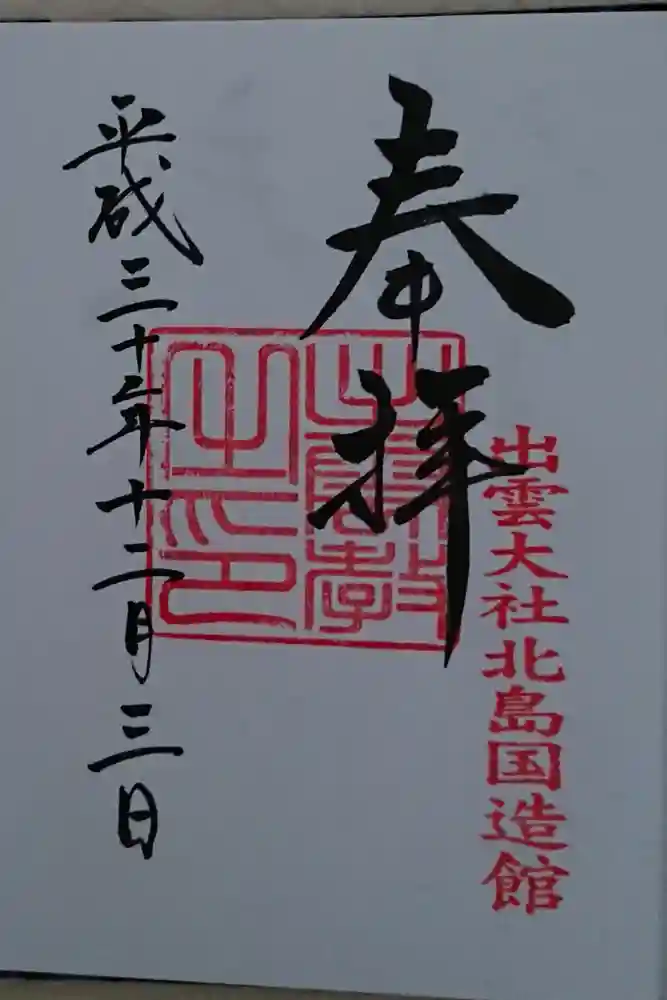 奉拝
出雲大社北島国造館
出雲教之印
平成三十年十二月三日